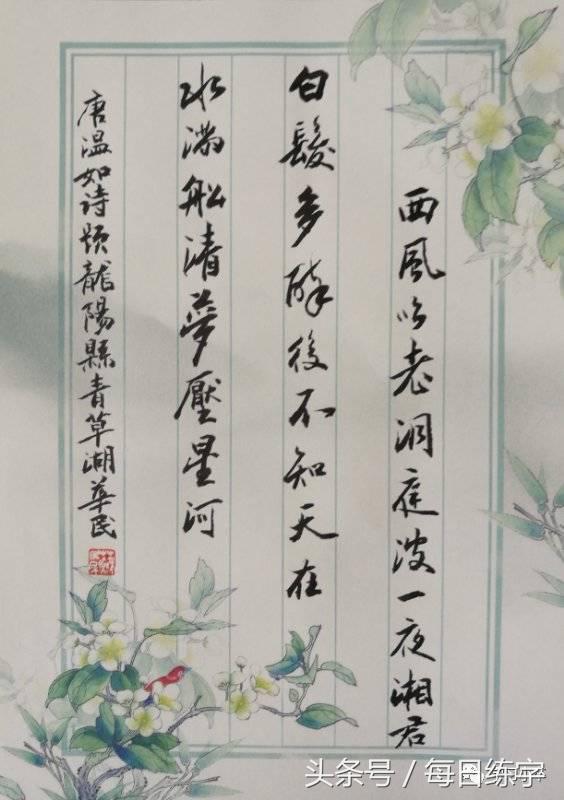 西風吹老洞庭波一夜湘君
白髮多醉後不知天在
水滿船清夢壓星河
唐温如诗题龍陽縣青草湖華民
头条号/每日练字